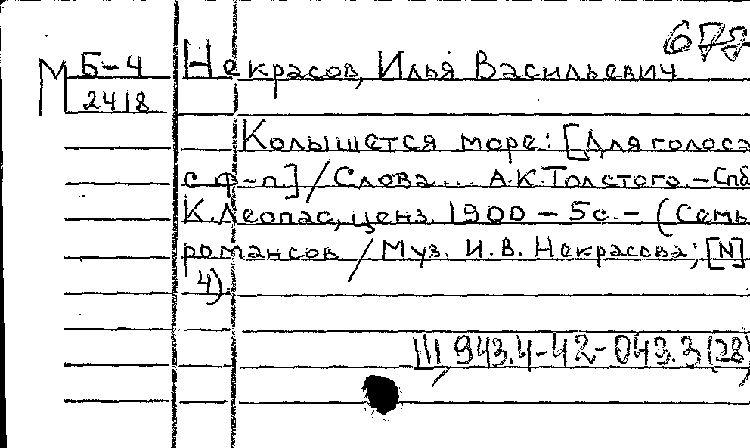 М Б-4 Некрасов, Илья Васильевич
2418
Колышется море: [Для голоса
с ф-п.] / Слова... А.К. Толстого. – Спб
К. Леопас, ценз. 1900 – 5с. – (Семь
романсов / Муз. И.В. Некрасова; [N]
4).
943.4-42-043.3 (28)